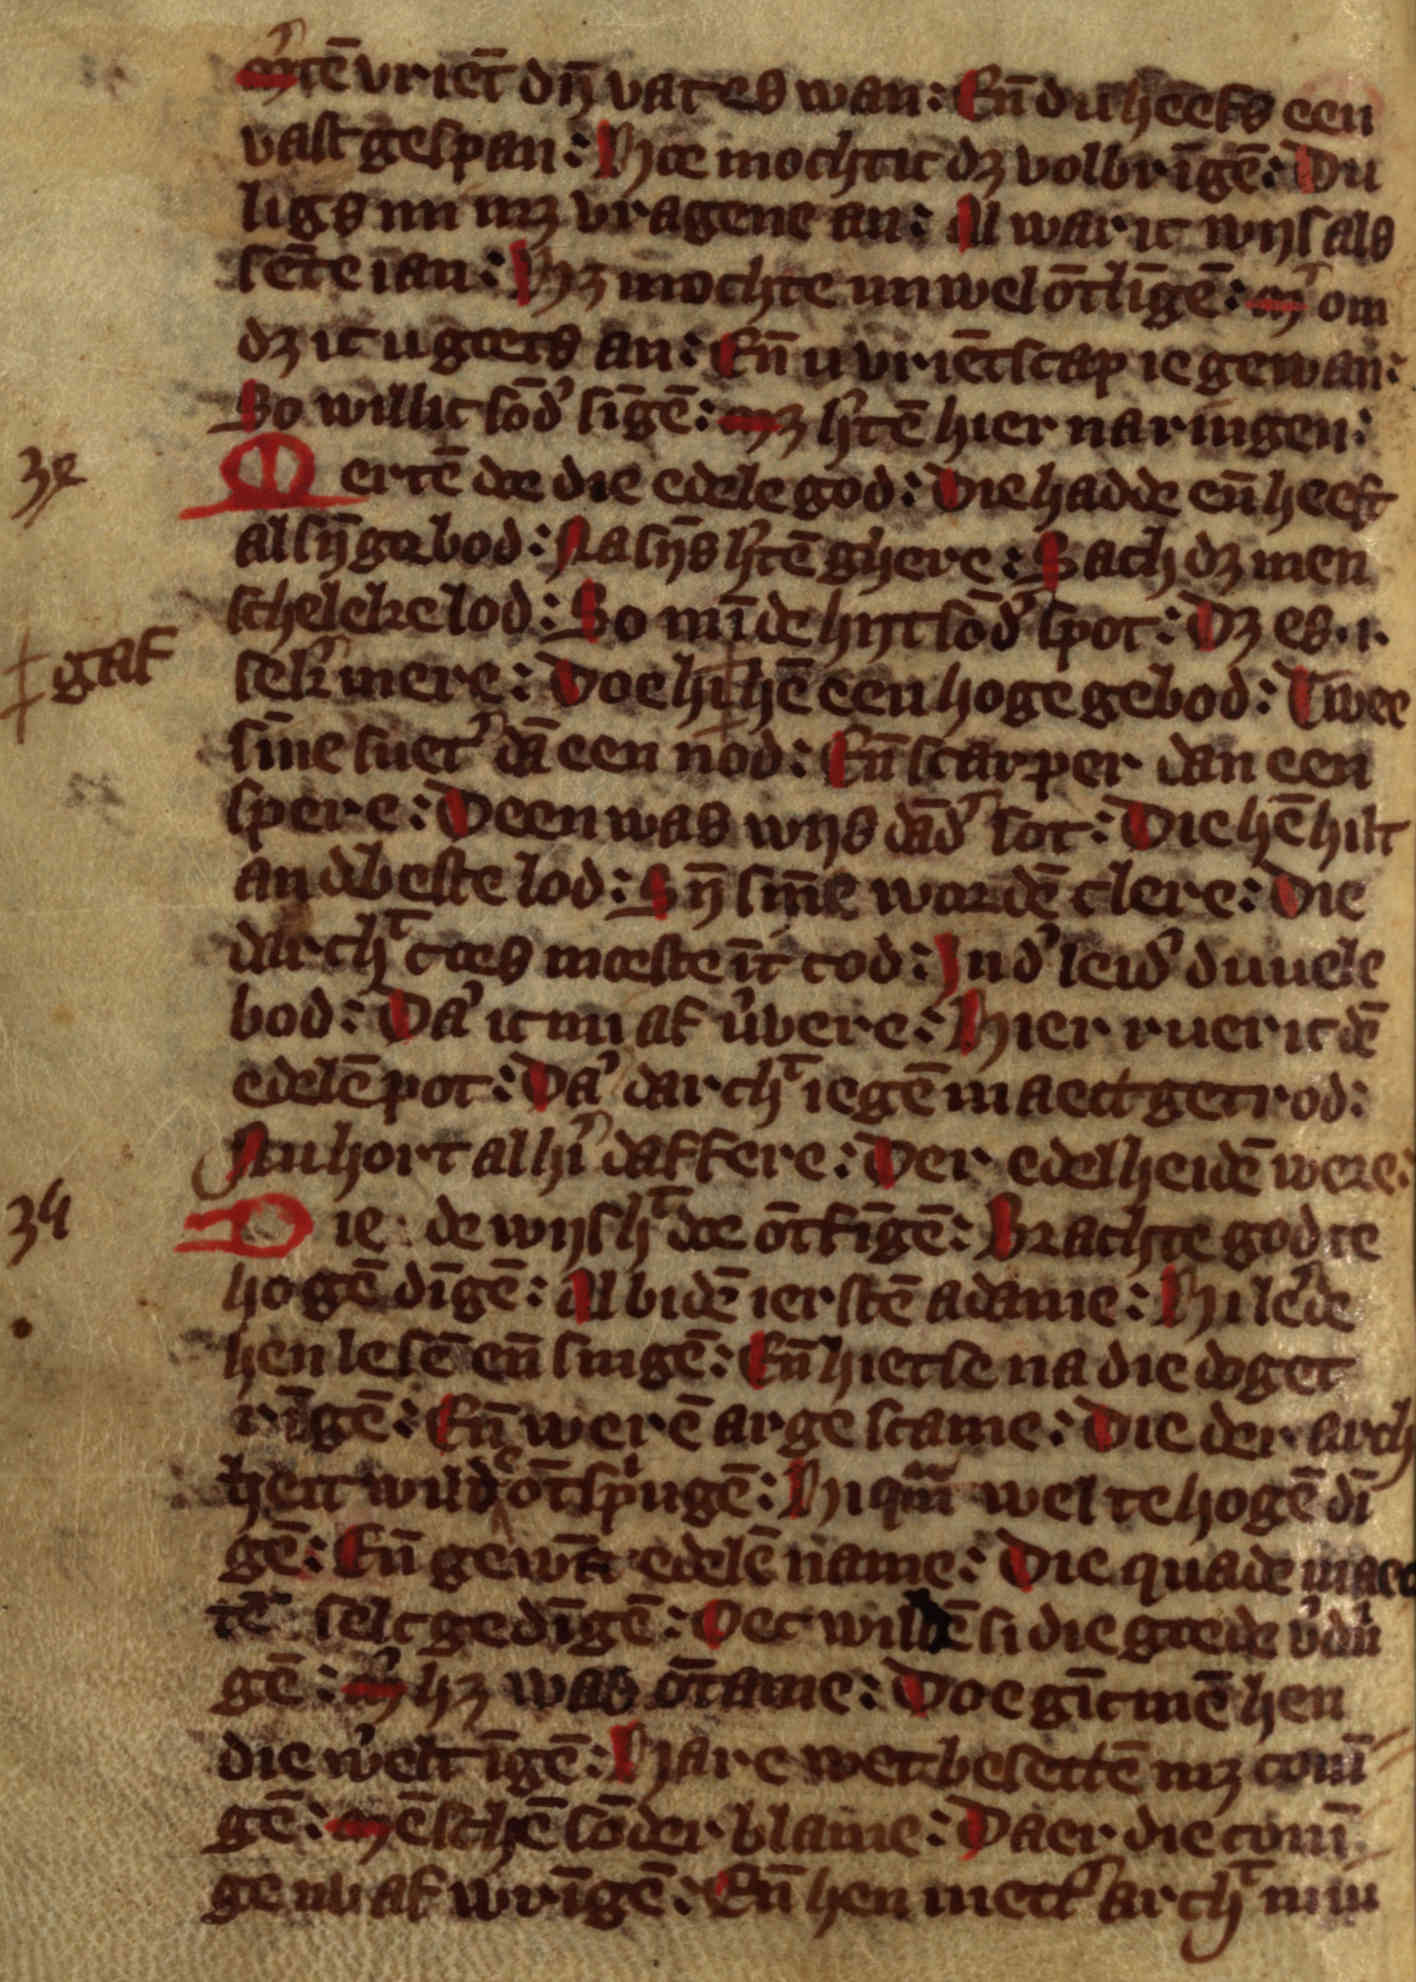 m̅tē vriēt dij̄ vates wan: Eñ du heefs een
vast gespan: Hoe mochtic dꝫ volbrīgē: Du
ligs mi mꝫ vragene an: Al war ic wijs als
sēte ian: Hꝫ mochte mi wel ōtlīgē: m̅ om
dꝫ ic u goets an: Eñ u vriētscap ie gewan:
So willic sōd' sīgē: mꝫ h'tē hier na ringen:
32
Mertē doe die edele god: Die hadde eñ heeft
al sij̄ gebod: Na sijs h'tē ghere: Sach dꝫ men
scheleke lod: So mīde hijt sōd' spot: Dꝫ es .i.
‡ gaf
sek' mere: Doe hi ‡ hē een hoge gebod: Twee
sīne suet' dā een nod: Eñ scarper dan een
spere: Deen was wijs dād' sot: Die hē hilt
an dbeste lod: Sij̄ sīne wordē clere: Die
darch't coes meeste īt cod: In d' leid' duuele
bod: Da' ic mi af v'vere: Hier rueric dē
edelē pot: Da' darch't iegē maect getrod:
Nu hort al hi' daffere: Der edelheidē were:
34
Die de wijsh't doe ōtfīgē: Brachte god te
hogē dīgē: Al bidē ierstē adame: Hi leerde
hen lesē eñ singē: Eñ hietse na die doget
rīgē: Eñ werē arge scame: Die der arch
heit wilde ōtsp'ngē: Hi quam wel te hogē dī
gē: Eñ gewā edelē name: Die quade maec
tē selc gedīgē: Oec wildē si die goede v'dri
gē: m̅ hꝫ was ōtame: Doe gīcmē hen
die w'elt īgē: Hare wet besettē mꝫ conī
gē: mēschē sōder blame: Daer die conī
ge nv af wrīgē: Eñ hen mect' arch't mīn